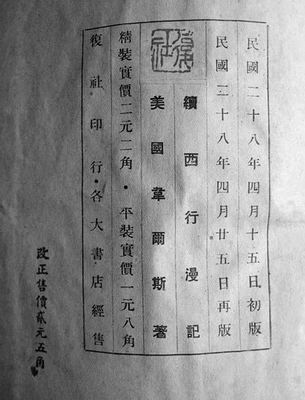 民國二十八年四月十五日初版
民國二十八年四月廿五日再版
續西行漫記
美國韋爾斯著
復社
精裝實價二元二角・平裝實價一元八角
復社印行・各大書店經售
改正售價貳元五角